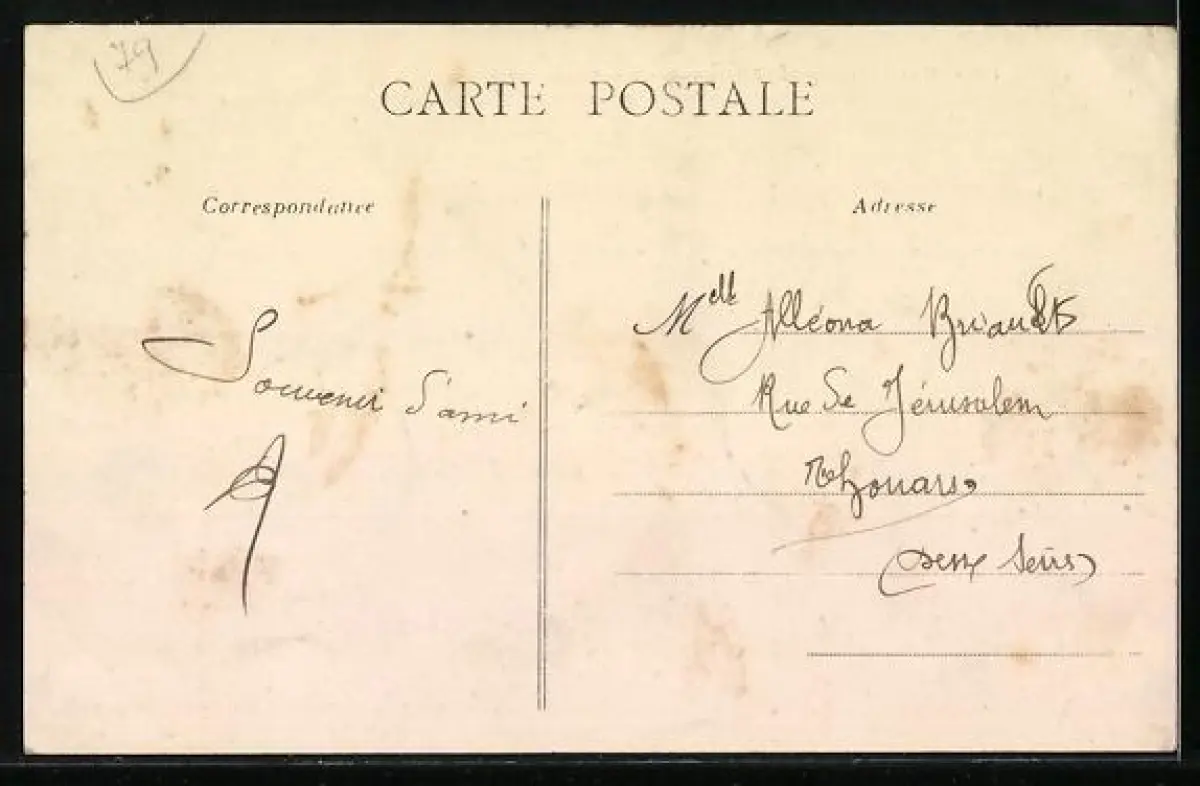 79
CARTE POSTALE
Correspondance
Adresse
Souvenir d'ami
Melle Alléona Briault
Rue de Jérusalem
Thouars
(Deux Sèvres)